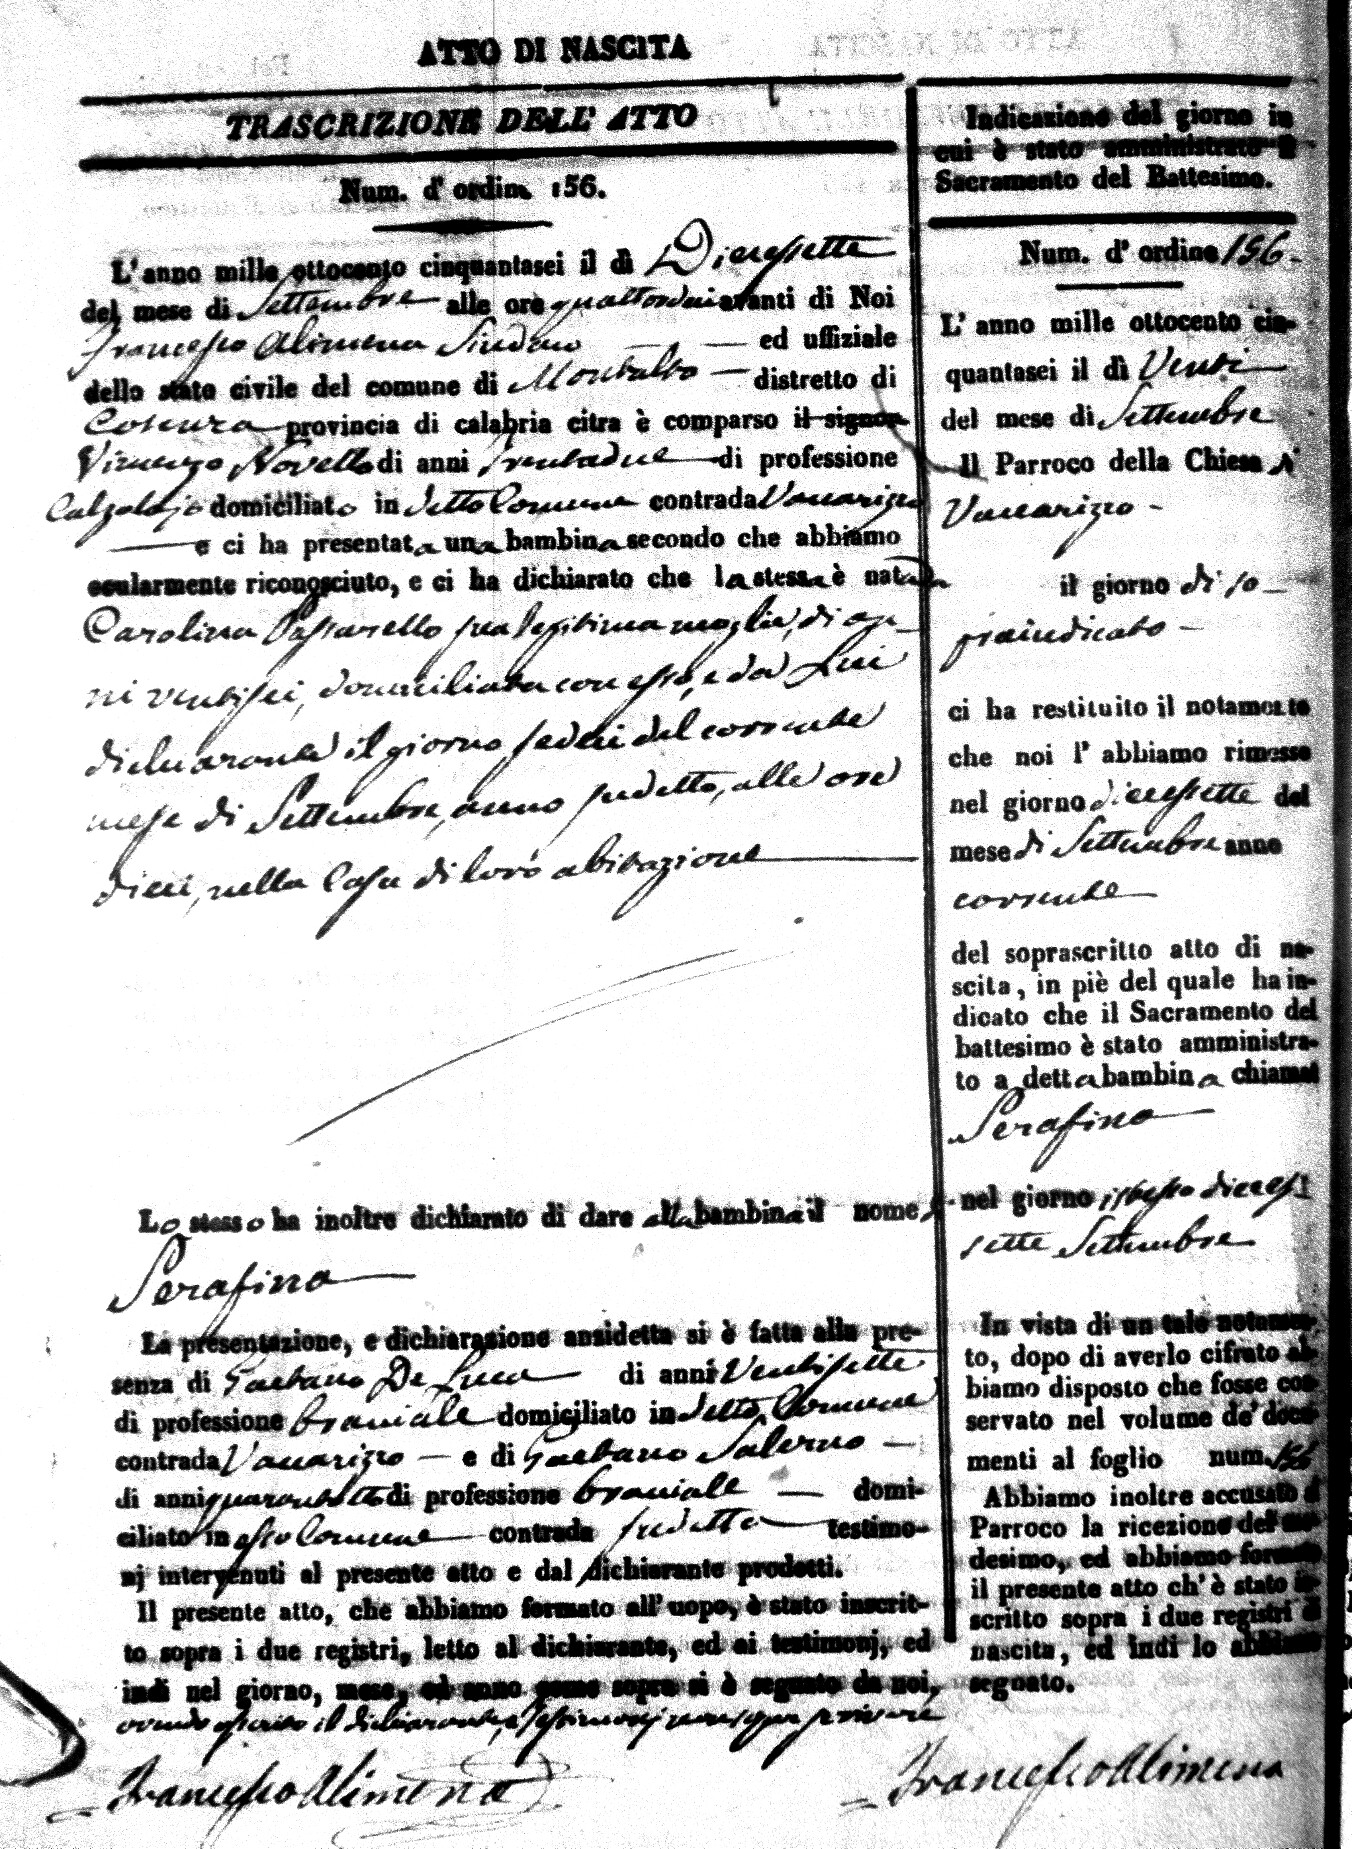 ATTO DI NASCITA
TRASCRIZIONE DELL' ATTO
Num. d' ordine 156.
L' anno mille ottocento cinquantasei il dì Diecessette
del mese di Settembre alle ore quattordici avanti di Noi
Francesco Alimena Sindaco — — ed uffiziale
dello stato civile del comune di Montalto — distretto di
Cosenza provincia di calabria citra è comparso il signor
Vincenzo Novello di anni trentadue di professione
Calzolajo domiciliato in detto Comune contrada Vaccarizzo
— e ci ha presentata una bambina secondo che abbiamo
ocularmente riconosciuto, e ci ha dichiarato che la stessa è nata da
Carolina Passarello sua legitima moglie, di an-
ni ventisei, domiciliata con esso, e da Lui
dichiarante il giorno sedici del corrente
mese di Settembre, anno sudetto, alle ore
dieci, nella Casa di loro abitazione
Lo stesso ha inoltre dichiarato di dare alla bambina il nome di
Serafina
La presentazione, e dichiarazione ansidetta si è fatta alla pre-
senza di Gaetano De Luca di anni Ventisette
di professione braciale domiciliato in detto Comune
contrada Vaccarizzo — e di Gaetano Salerno —
di anni quarantotto di professione braciale — domi-
ciliato in esso Comune contrada sudetta testimo-
nj intervenuti al presente atto e dal dichiarante prodotti.
Il presente atto, che abbiamo formato all' uopo, è stato inscrit-
to sopra i due registri, letto al dichiarante, ed ai testimonj, ed
indi nel giorno, mese, ed anno come sopra si è segnato da noi,
avendo il dichiarante, e testimonj
Francesco Alimena
Indicazione del giorno in
cui è stato amministrato il
Sacramento del Battesimo.
Num. d' ordine 156.
L' anno mille ottocento cin-
quantasei il dì Venti
del mese di Settembre
Il Parroco della Chiesa di
Vaccarizzo -
il giorno di so-
praindicato -
ci ha restituito il notamento
che noi l' abbiamo rimesso
nel giorno diecessette del
mese di Settembre anno
corrente
del soprascritto atto di na-
scita, in piè del quale ha in-
dicato che il Sacramento del
battesimo è stato amministra-
to a detta bambina chiamat
Serafina
nel giorno istesso dieces-
sette Settembre
In vista di un tale notamen-
to, dopo di averlo cifrato ab-
biamo disposto che fosse con-
servato nel volume de' docu-
menti al foglio num. 156
Abbiamo inoltre accusato al
Parroco la ricezione del me-
desimo, ed abbiamo formato
il presente atto ch' è stato in-
scritto sopra i due registri di
nascita, ed indi lo abbiamo
segnato.
Francesco Alimena